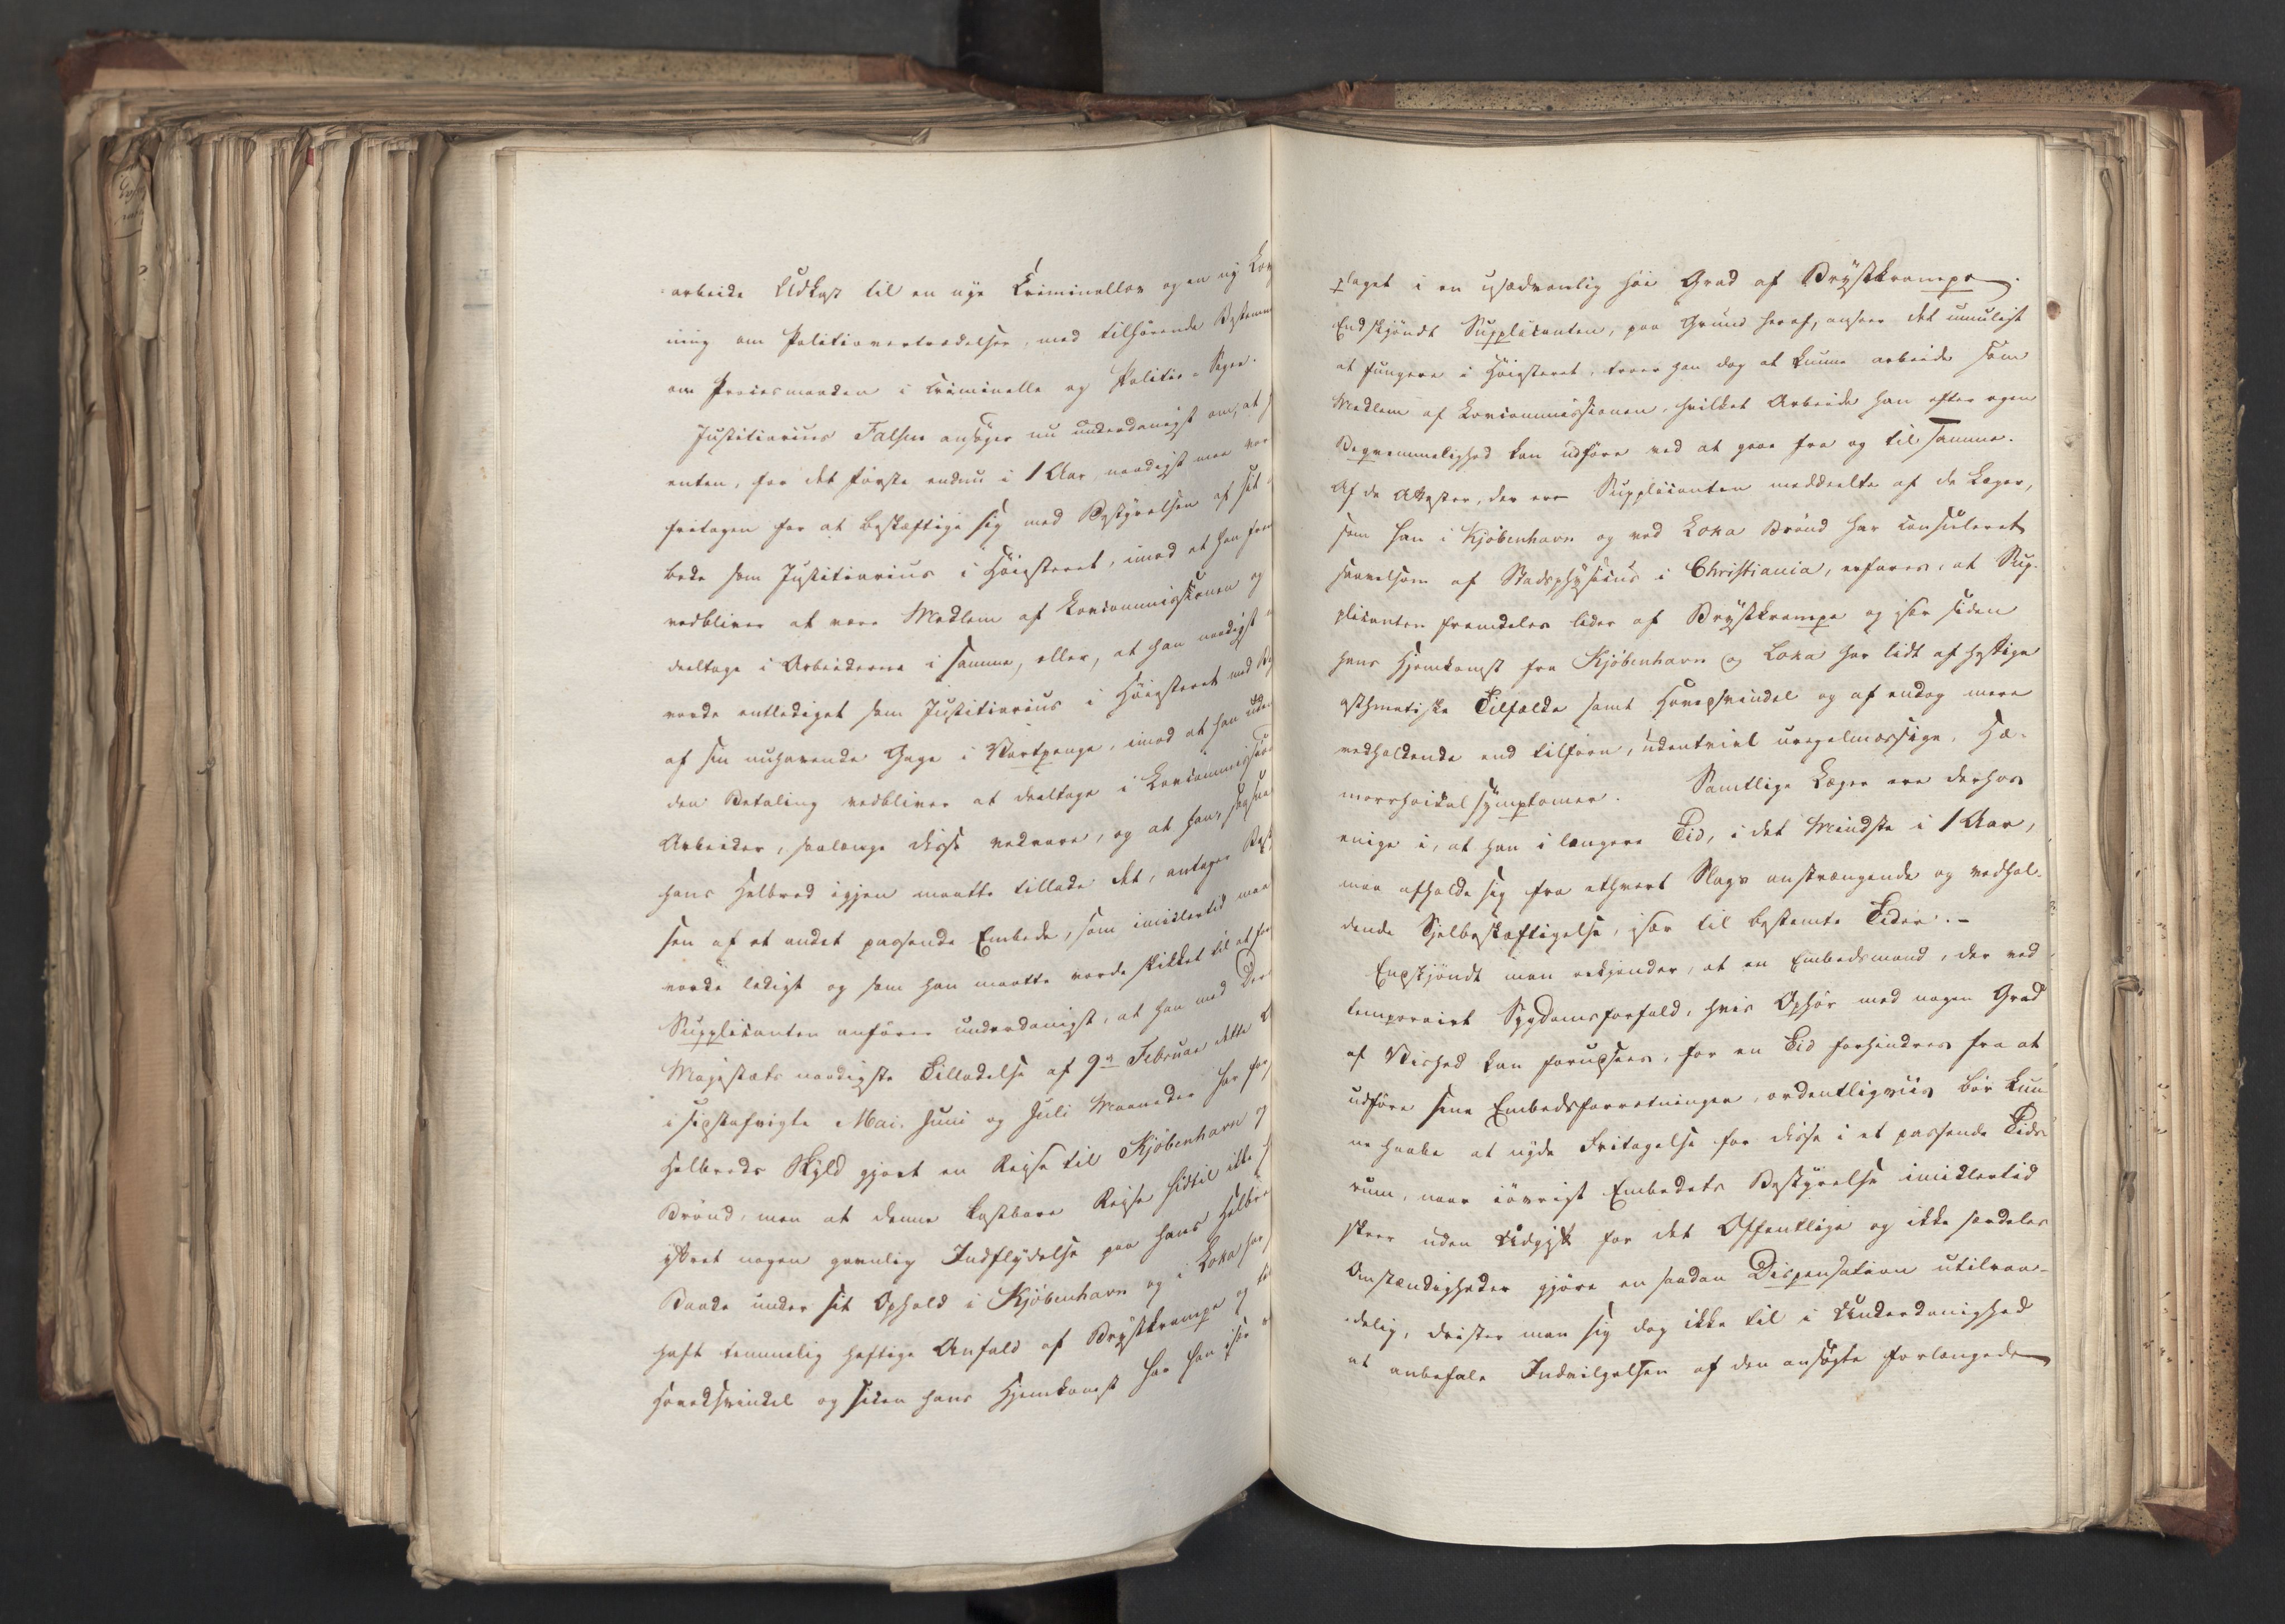 arbeide Udkast til en nye Criminallov og en ny Lov
ning om Politieovertrædelser, med tilhørende Bestemm
om Procesmaaden i criminelle og Politie-Sager.
Justitiarius Falsen ansøger nu underdanigst om, at h
enten, for det første endnu i 1 Aar, naadigst maa vor
fritagen for at beskæftige sig med Bestyrelsen af sit
bede som Justitiarius i Høiesteret, imod at han frem
vedbliver at være Medlem af Lovcommissionen og
deeltage i Arbeiderne i samme, eller, at han naadigst
vorde entlediget som Justitiarius i Høiesteret med
af sin nuhavende Gage i Vartpenge, imod at han uden
den Betaling vedbliver at deeltage i Lovcommission
Arbeider, saalænge disse vedvare, og at han, saasnar
hans Helbred igjen maatte tillade det, antager Best
sen af et andet passende Embede, som imidlertid maa
vorde ledigt og som han maatte vorde skikket til at
Supplicanten anfører underdanigst, at han med Der
Majestæts naadigste Tilladelse af 9de Februar dette A
i sidstafvigte Mai, Juni og Juli Maaneder har for
Helbreds Skyld gjort en Reise til Kjøbenhavn og
Brønd, men at denne kostbare Reise hidtil ikke h
ydret nogen gavnlig Indflydelse paa hans Helbre
Baade under sit Ophold i Kjøbenhavn og i Loka har
haft temmelig heftige Anfald af Brystkrampe og
Hovedsvindel og siden hans Hjemkomst har han
plaget i en usædvanlig høi Grad af Brystkrampe.
Endskjøndt Supplicanten, paa Grund heraf, anseer det umuligt
at fungere i Høiesteret, troer han dog at kunne arbeide som
Medlem af Lovcommissionen, hvilket Arbeide han efter egen
Beqvemmelighed kan udføre ved at gaae fra og til samme.
Af de Attester, der ere Supplicanten meddeelte af de Læger,
som han i Kjøbenhavn og ved Loka Brønd har consuleret
saavelsom af Stadsphysicus i Christiania, erfares, at Sup-
plicanten fremdeles lider af Brystkrampe og især siden
hans Hjemkomst fra Kjøbenhavn og Loka har lidt af heftige
asthmatiske Tilfælde samt Hovedsvindel og af endog mere
vedholdende end tilforn, udentvivl uregelmæssige, Hæ-
morrhoidal symptomer. Samtlige Læger ere derhos
enige i, at han i længere Tid, i det Mindste i 1 Aar,
maa afholde sig fra ethvert Slags anstrængende og vedhol-
dende Sjelbeskæftigelse, især til bestemte Tider. -
Endskjøndt man erkjender, at en Embedsmand, der ved
temporairt Sygdomsforfald, hvis Ophør med nogen Grad
af Vished kan forudsees, for en Tid forhindres fra at
udføre sine Embedsforretninger, ordentligviis bør kun
ne haabe at nyde Fritagelse for disse i et passende Tids
rum, naar iøvrigt Embedets Bestyrelse imidlertid
skeer uden Udgift for det Offentlige og ikke særdeles
Omstændigheder gjøre en saadan Dispensation utilraa-
delig, drister man sig dog ikke til i Underdanighed
at anbefale Indvilgelsen af den ansøgte forlængede